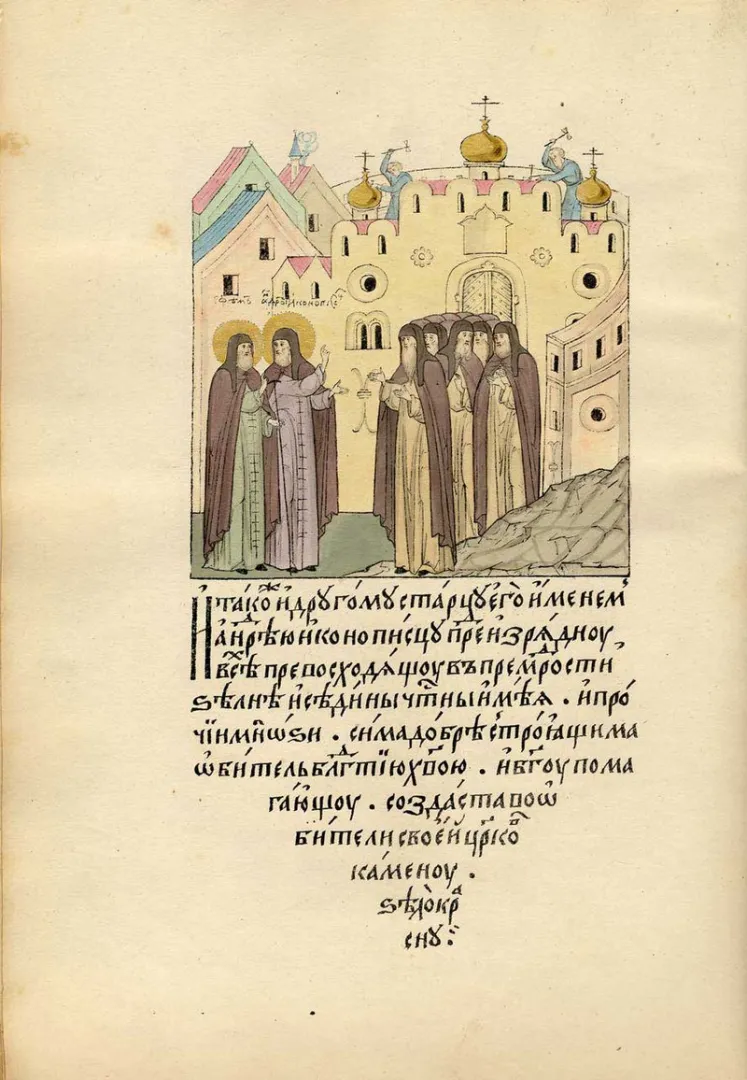 И҆ та́коⷤ и҆ дрꙋго́мꙋ ста́рцꙋ е҆го̀ и҆́менем
а҆нⷣрѣ́ю и҆коно пи́сцꙋ преи҆зрѧ́дноу
всѣⷯ превосходѧ́щоу въ премⷣрости
ѕѣ́лнѣ и҆ сѣди́ны чⷭтны и҆мѣ́ѧ . и҆ про
чїи мно́ѡѕи . си́ма до́брѣ стро́ѧщима
ѡ҆би́тель блгⷣтїю хвⷭою . и҆ бг҃оу пома
га́ющоу . созда́ста во ѡ҆
би́тели свое́й црⷪ҇коⷡ
ка́меноу .
ѕѣлⷪ крⷭа
снꙋ :·